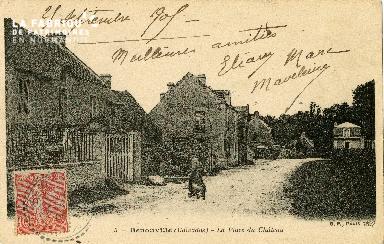 LA FABRIQUE
DE PATRIMOINES
EN NORMANDIE
21 Septembre
Meilleures amitiés
Eliane Marc
Madeleine
5 - Benouville (Calvados) - La Place du Château
PARIS